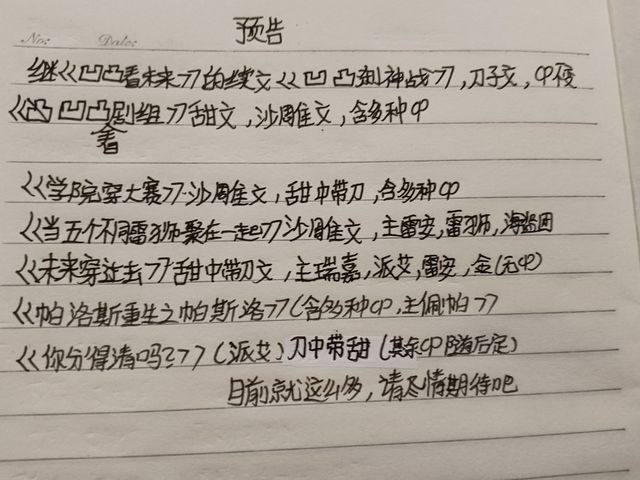 预告
No:
Date:
继《凹凸看未来》的续文《凹凸到神战》,刀子文,CP夜
《凸凹凸剧组》甜文,沙雕文,含多种CP
《学院穿大赛》沙雕文,甜中带刀,含多种CP
《当五个不同雷狮聚在一起》沙雕文,主雷安,雷狮,海盗团
《未来穿过去》甜中带刀文,主瑞嘉,派艾,雷安,金(无CP)
《帕洛斯重生之帕斯洛》(含多种CP,主佩帕)
《你分得清吗?》(派艾)刀中带甜(其余CP随后定)
目前就这么多,请尽情期待吧